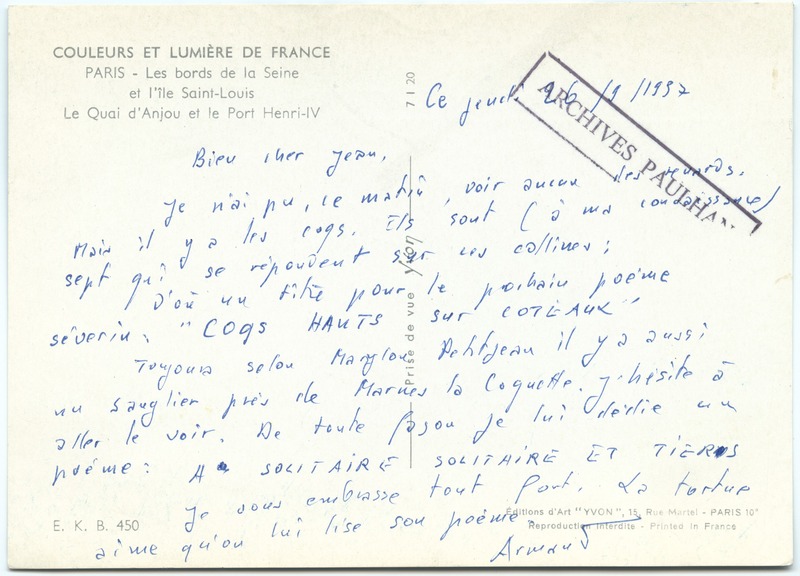 COULEURS ET LUMIÈRE DE FRANCE
PARIS - Les bords de la Seine
et l'île Saint-Louis
Le Quai d'Anjou et le Port Henri-IV
7 I 20
ARCHIVES PAULHAN
Ce jeudi 26/9/1957
Bien cher Jean,
Je n'ai pu, ce matin, voir aucun des renards.
Mais il y a les coqs. Ils sont (à ma connaissance)
sept qui se répondent sur les collines ;
D'où un titre pour le prochain poème
séverin : "COQS HAUTS sur COTEAUX"
Toujours selon Marylou Petitjean il y a aussi
un sanglier près de Marnes la Coquette. J'hésite à
aller le voir. De toute façon je lui dédie un
poème : A SOLITAIRE SOLITAIRE ET TIERS
Je vous embrasse tout fort. La tortue
aime qu'on lui lise son poème.
Armand
Prise de vue Yvon
E. K. B. 450
Éditions d'Art "YVON", 15, Rue Martel - PARIS 10e
Reproduction Interdite - Printed in France